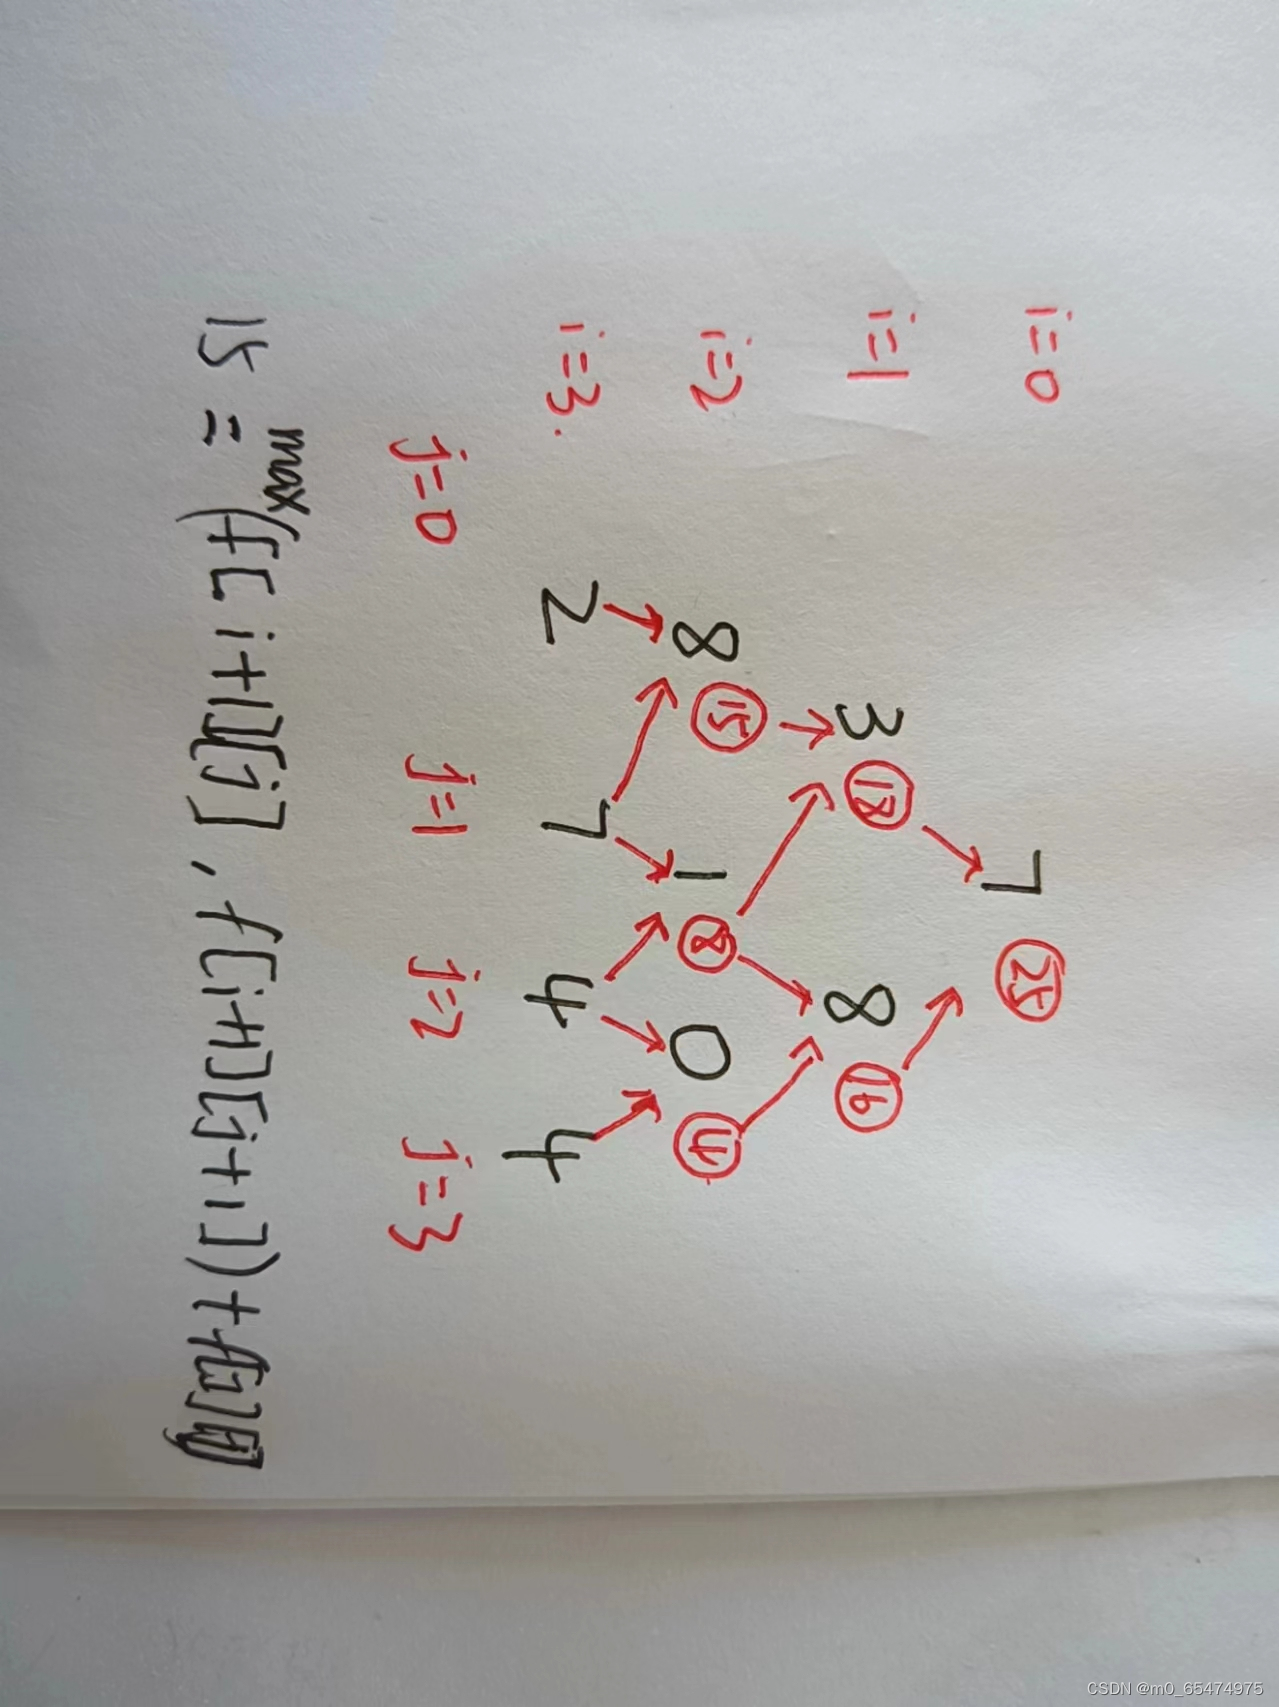 i=0 7 25
i=1 3 18 8 16
i=2 8 15 1 8 0 4
i=3. 2 7 4 4
j=0 j=1 j=2 j=3
15 = max(f[i+1][j], f[i+1][j+1])+f[i][j]
CSDN @m0_65474975